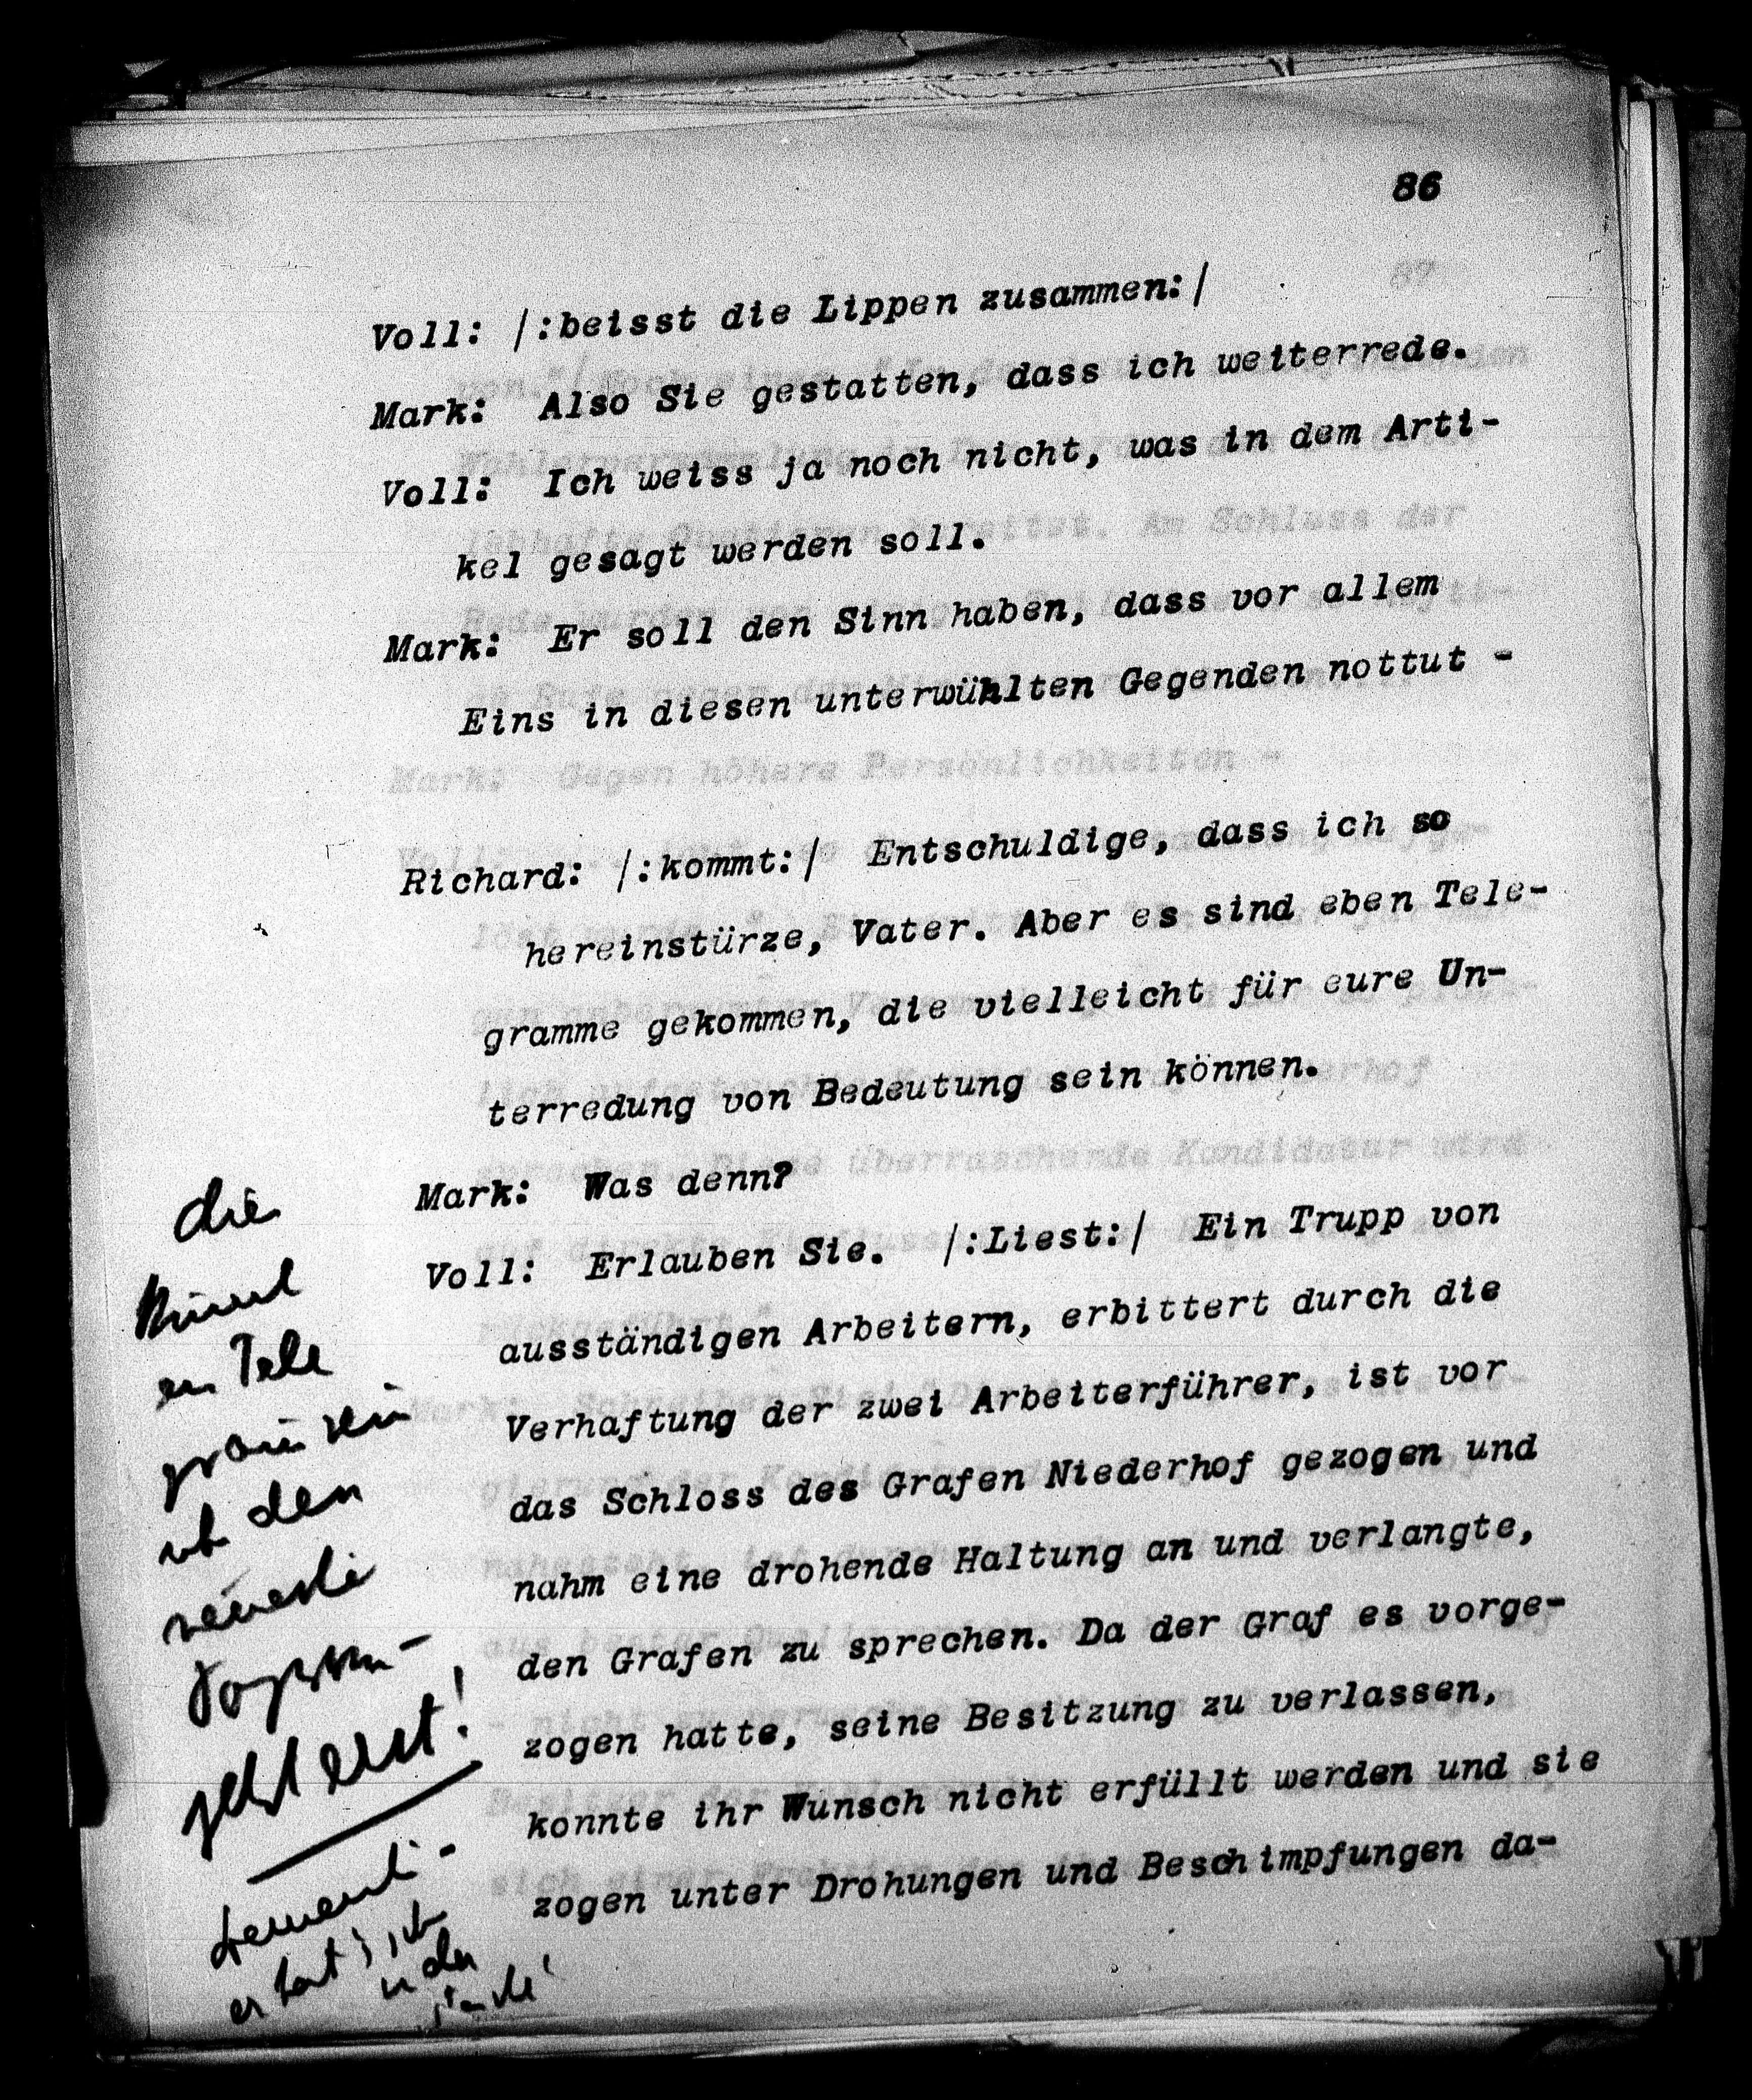 86
Voll: /:beisst die Lippen zusammen:/
Mark: Also Sie gestatten, dass ich weiterrede.
Voll: Ich weiss ja noch nicht, was in dem Arti-
kel gesagt werden soll.
Mark: Er soll den Sinn haben, dass vor allem
Eins in diesen unterwühlten Gegenden nottut -
Richard: /:kommt:/ Entschuldige, dass ich so
hereinstürze, Vater. Aber es sind eben Tele-
gramme gekommen, die vielleicht für eure Un-
terredung von Bedeutung sein können.
Mark: Was denn?
Voll: Erlauben Sie. /:Liest:/ Ein Trupp von
ausständigen Arbeitern, erbittert durch die
Verhaftung der zwei Arbeiterführer, ist vor
das Schloss des Grafen Niederhof gezogen und
nahm eine drohende Haltung an und verlangte,
den Grafen zu sprechen. Da der Graf es vorge-
zogen hatte, seine Besitzung zu verlassen,
konnte ihr Wunsch nicht erfüllt werden und sie
zogen unter Drohungen und Beschimpfungen da-
die
den
jetzt erst!
er hat